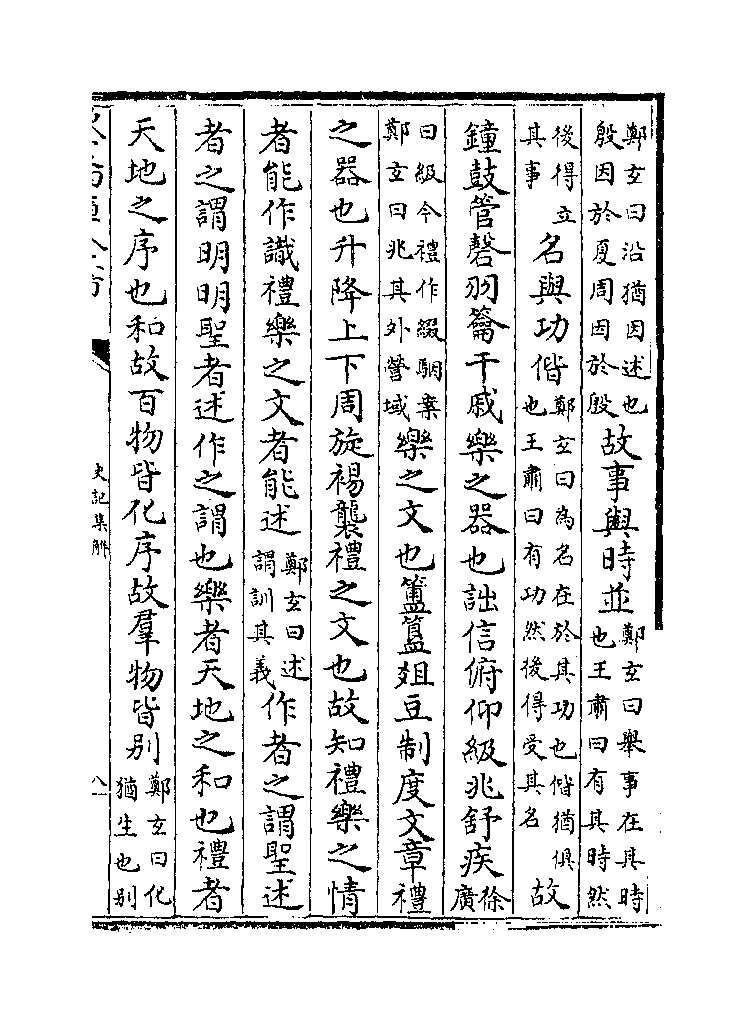 鄭玄曰沿猶因述也殷因於夏周因於殷故事與時並鄭玄曰舉事在其時也王肅曰有其時然
後得立其事名與功偕鄭玄曰為名在於其功也偕猶俱也王肅曰有功然後得受其名故
鐘鼓管磬羽籥干戚樂之器也詘信俯仰級兆舒疾徐廣
曰級今禮作綴駰案鄭玄曰兆其外營域樂之文也簠簋俎豆制度文章禮
之器也升降上下周旋裼襲禮之文也故知禮樂之情
者能作識禮樂之文者能述鄭玄曰述謂訓其義作者之謂聖述
者之謂明明聖者述作之謂也樂者天地之和也禮者
天地之序也和故百物皆化序故羣物皆別鄭玄曰化猶生也别
史記集解